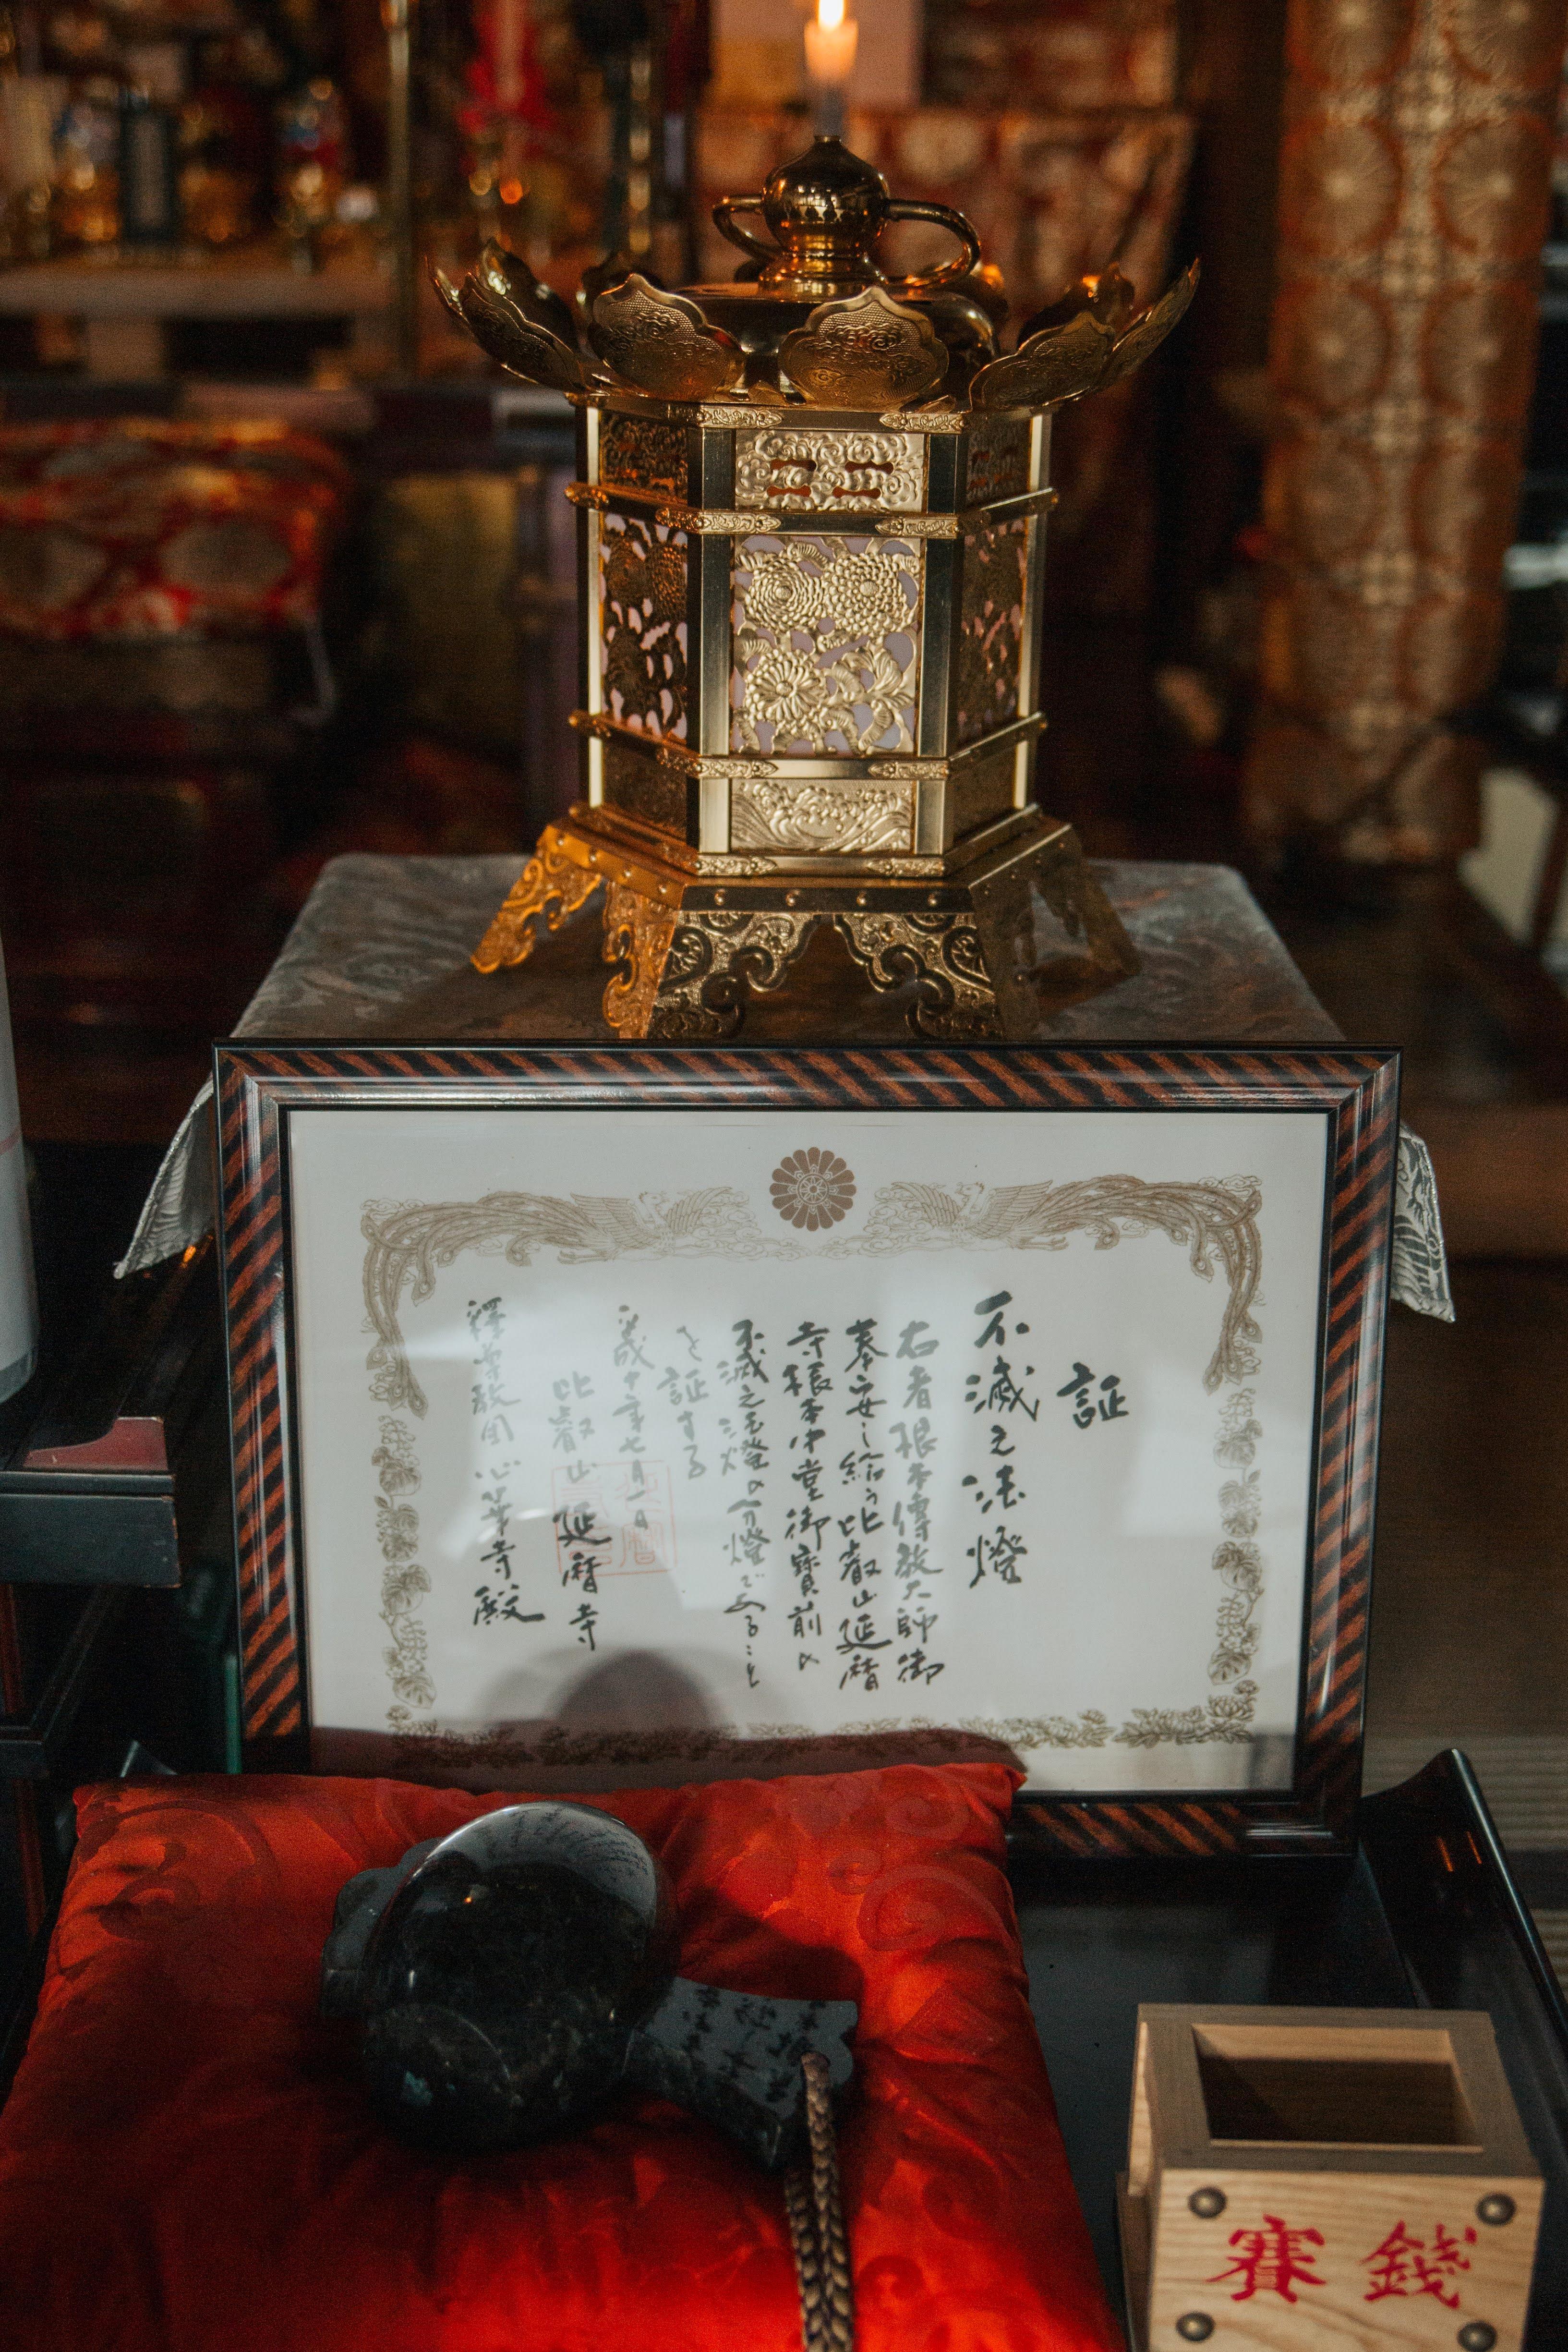 証
不滅之法燈
右者根本傳教大師御
奉安し給う比叡山延暦
寺根本中堂御寶前の
不滅之法燈の分燈であること
を証する
平成十二年七月一日
比叡山延暦寺
釋尊教団心華寺殿
賽錢